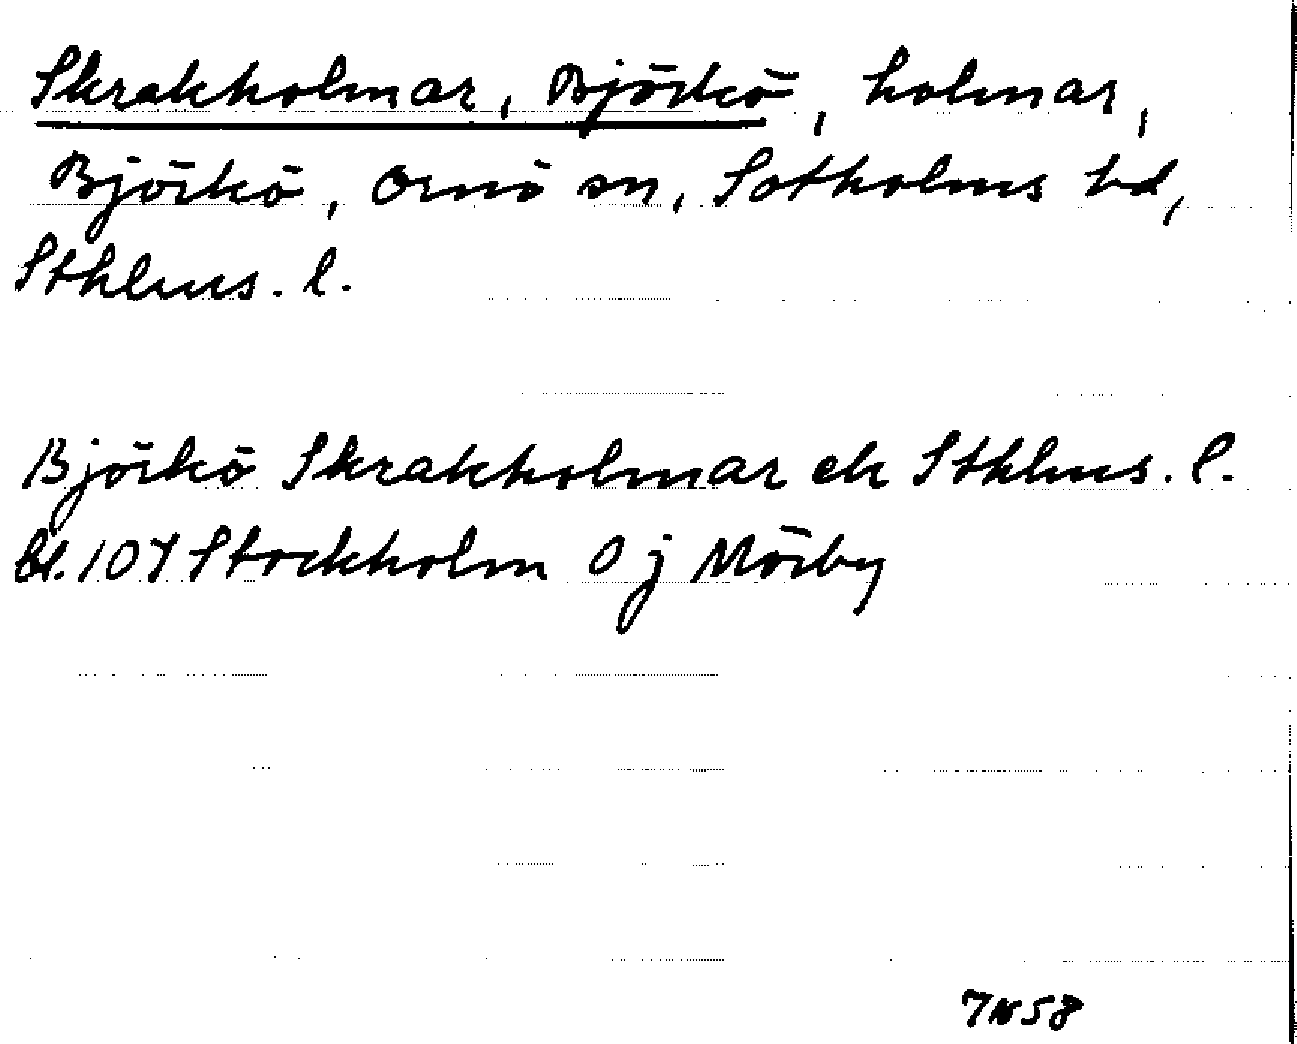 Skrakholmar, Björkö, holmar,
Björkö, Ornö sn, Sotholms hd,
Sthlms. l.
Björkö Skrakholmar ek Sthlms. l.
bl. 107 Stockholm O j Mörby
7N58